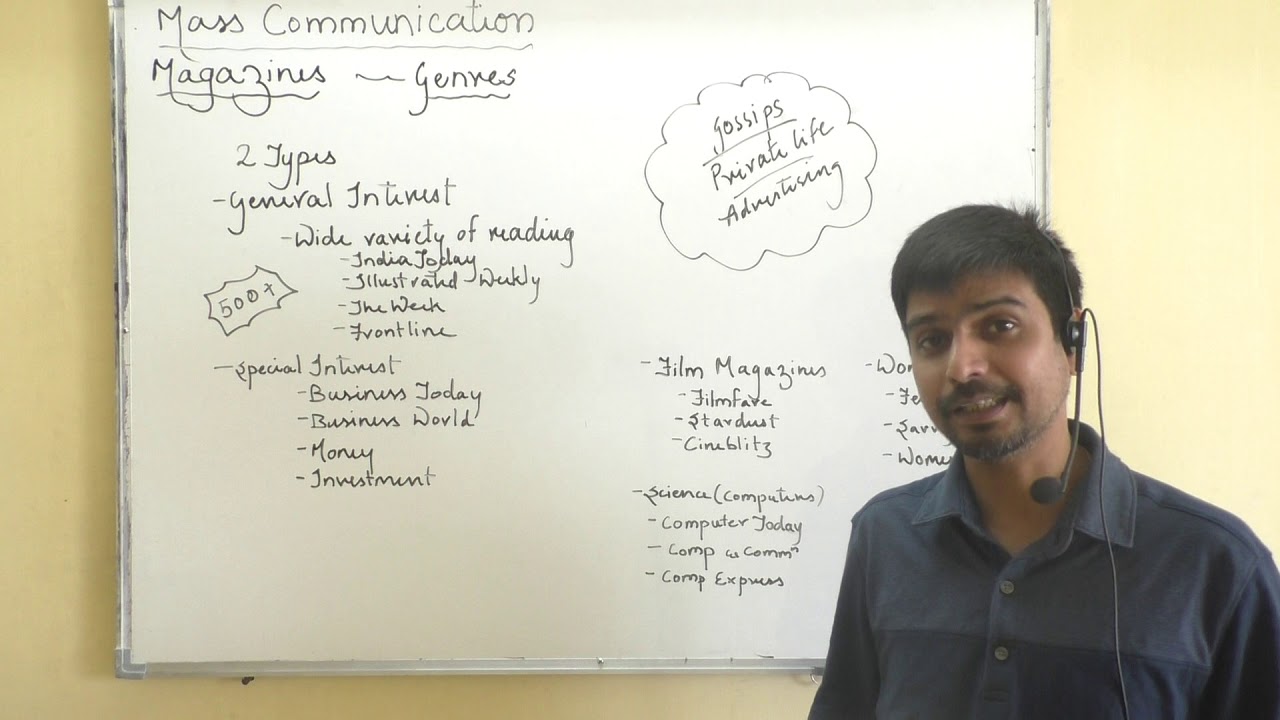 Mass Communication
Magazines — Genres
2 Types
- General Interest
- Wide variety of reading
- India Today
- Illustrated Weekly
- The Week
- Frontline
500+
- Special Interest
- Business Today
- Business World
- Money
- Investment
Gossips
Private life
Advertising
- Film Magazines
- Filmfare
- Stardust
- Cineblitz
- Science (Computers)
- Computer Today
- Comp & Commⁿ
- Comp Express